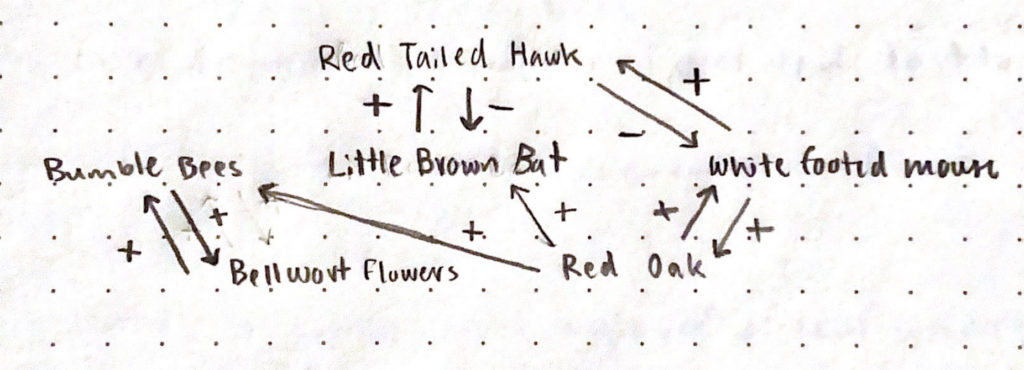 Red Tailed Hawk
+ - + -
Bumble Bees Little Brown Bat White footed mouse
+ + + + + +
Bellwort Flowers Red Oak